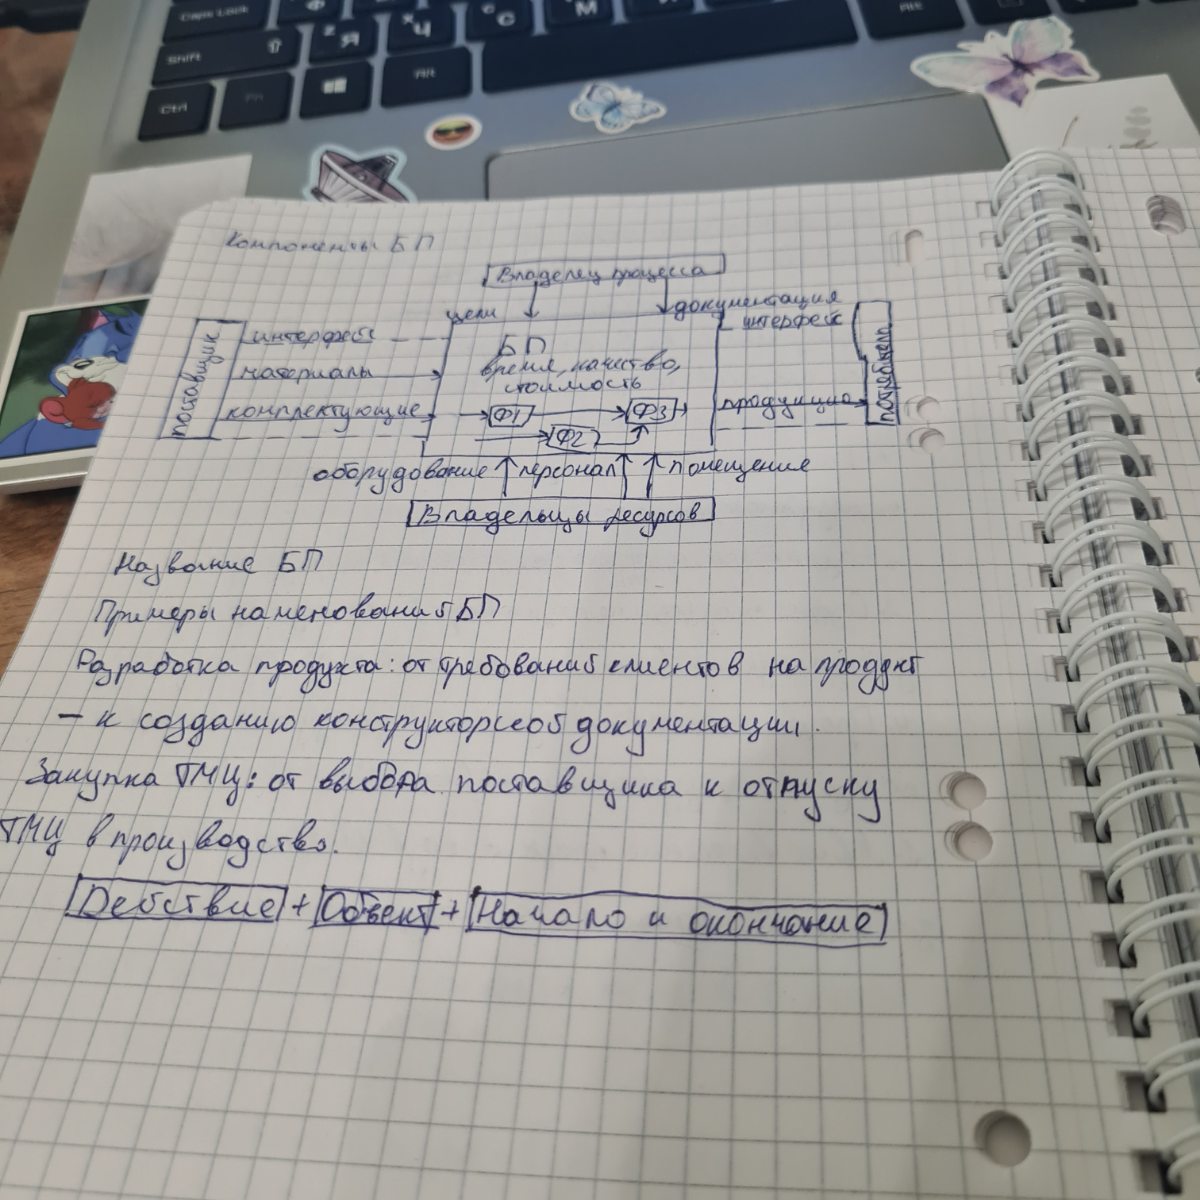 Caps Lock
Shift
Я
Ч
С
М
Ctrl
Fn
Alt
Alt
Компоненты БП
Владелец процесса
цели
документация
поставщик
интерфейс
интерфейс
потребитель
БП
время, качество,
стоимость
материалы
комплектующие
Ф1
Ф3
продукция
Ф2
оборудование
персонал
помещение
Владельцы ресурсов
Название БП
Примеры наменования БП
Разработка продукта: от требования клиентов на продукт
– к созданию конструкторской документации.
Закупка ТМЦ: от выбора поставщика к отпуску
ТМЦ в производство.
Действие + Объект + Начало и окончание